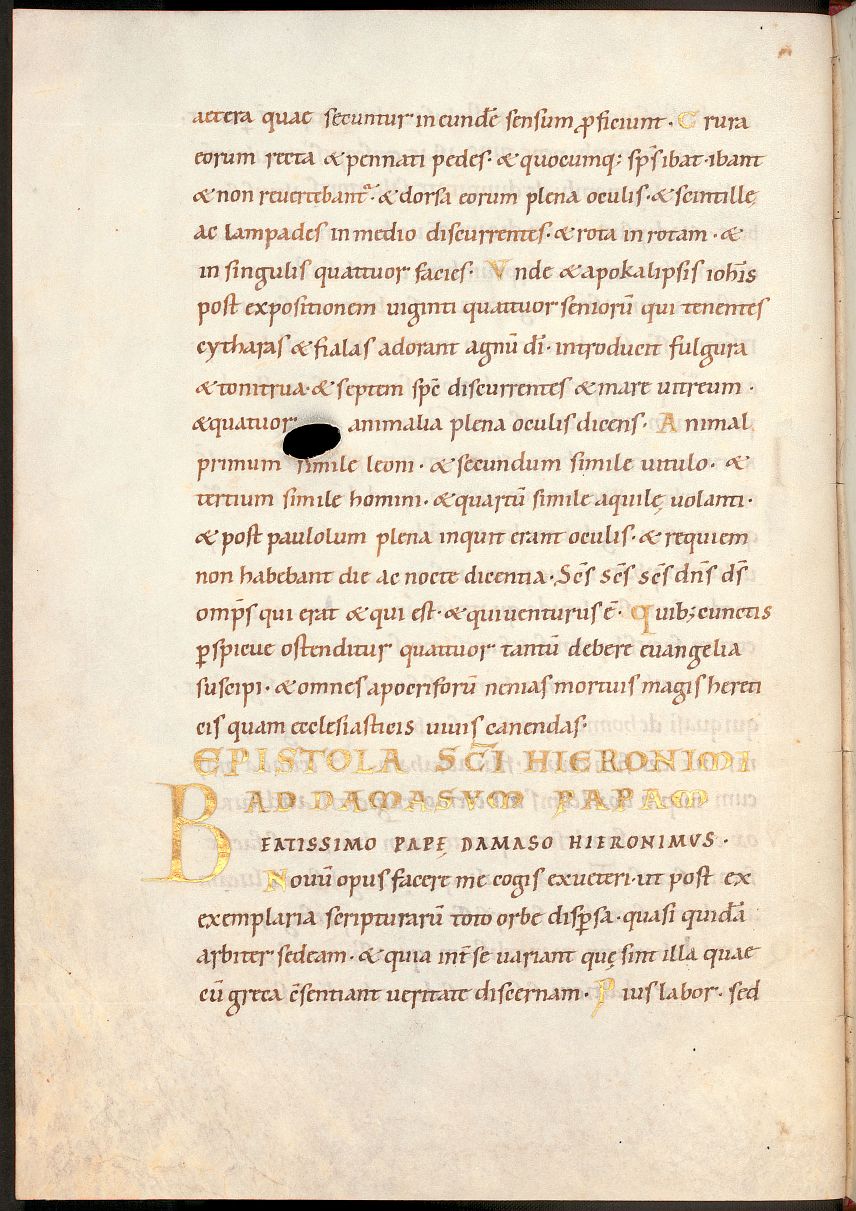 aetera quae secuntur in eundē sensum ꝓficiunt. Crura
eorum recta & pennati pedes: & quocumq; sp̄s ibat · ibant
& non reuertebantᵃ · & dorsa eorum plena oculis · & scintillę
ac lampades in medio discurrentes · & rota in rotam · &
in singulis quattuor facies. Vnde & apokalipsis ioh̄is
post expositionem uiginti quattuor seniorū qui tenentes
cytharas & fialas adorant agnū dī · introducit fulgura
& tonitrua · & septem spc̄ discurrentes & mare uitreum ·
& quatuor animalia plena oculis dicens · Animal
primum simile leoni · & secundum simile uitulo · &
tertium simile homini · & quartū simile aquilę uolanti ·
& post paulolum plena inquit erant oculis · & requiem
non habebant die ac nocte dicentia · Sc̄s sc̄s sc̄s dn̄s ds̄
omp̄s qui erat & qui est · & qui uenturus ē · Quib; cunctis
ꝑspicue ostenditur quattuor tantū debere euangelia
suscipi · & omnes apocriforū nenias mortuis magis hereti
cis quam ecclesiasticis uiuis canendas ·
EPISTOLA SC̄I HIERONIMI
AD DAMASVM PAPAM
BEATISSIMO PAPĘ DAMASO HIERONIMVS ·
Nouū opus facere me cogis ex ueteri · ut post ex
exemplaria scripturarū toto orbe disꝑsa · quasi quidā
arbiter sedeam · & quia int̄ se uariant quę sint illa quae
cū greca c̄sentiant ueritate discernam · Pius labor · sed